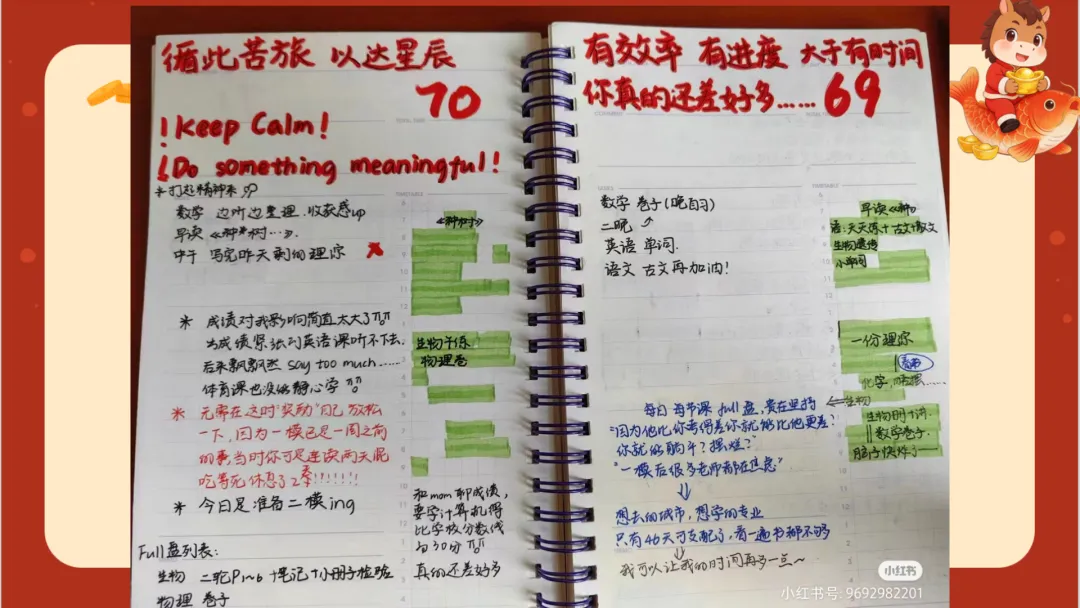 循此苦旅 以达星辰
70
!Keep Calm!
!Do something meaningful!
*打起精神来
数学 边听边整理.收获感up
早读 《种树….》.
中午 写完昨天剩的理综
*成绩对我影响简直太大了
当成绩紧张到英语课听不下去.
后来飘飘然 say too much……
体育课也没能静心学
*无需在这时"奖励"自己放松
一下,因为一模已是一周之前
的事,当时你可是连续两天混
吃等死休息了2季!!!!!!
*今日是准备二模ing
Full盘列表:
生物 二轮P1~6 +笔记+小册子检验
物理 卷子
《种树》
生物手练
物理卷
和mom聊成绩,
要学计算机得
比学校分数线
高30分
真的还差好多
有效率 有进度 大于有时间
你真的还差好多……69
数学 卷子(晚自习)
二晚
英语 单词.
语文 古文再加油!
早读《种》
语:天天练+古文+散文
生物遗传
小单词
一份理综
化学,
生物
生物册+词.
数学卷子.
脑子快炸了——
每日每节课full盘,贵在坚持
"因为他比你考得差你就能比他更差?
你就能躺平?摆烂?"
"一模后很多老师都在焦虑"
想去的城市,想学的专业
只有46天可支配了,看一遍书都不够
我可以让我的时间再多一点~
小红书
小红书号: 9692982201